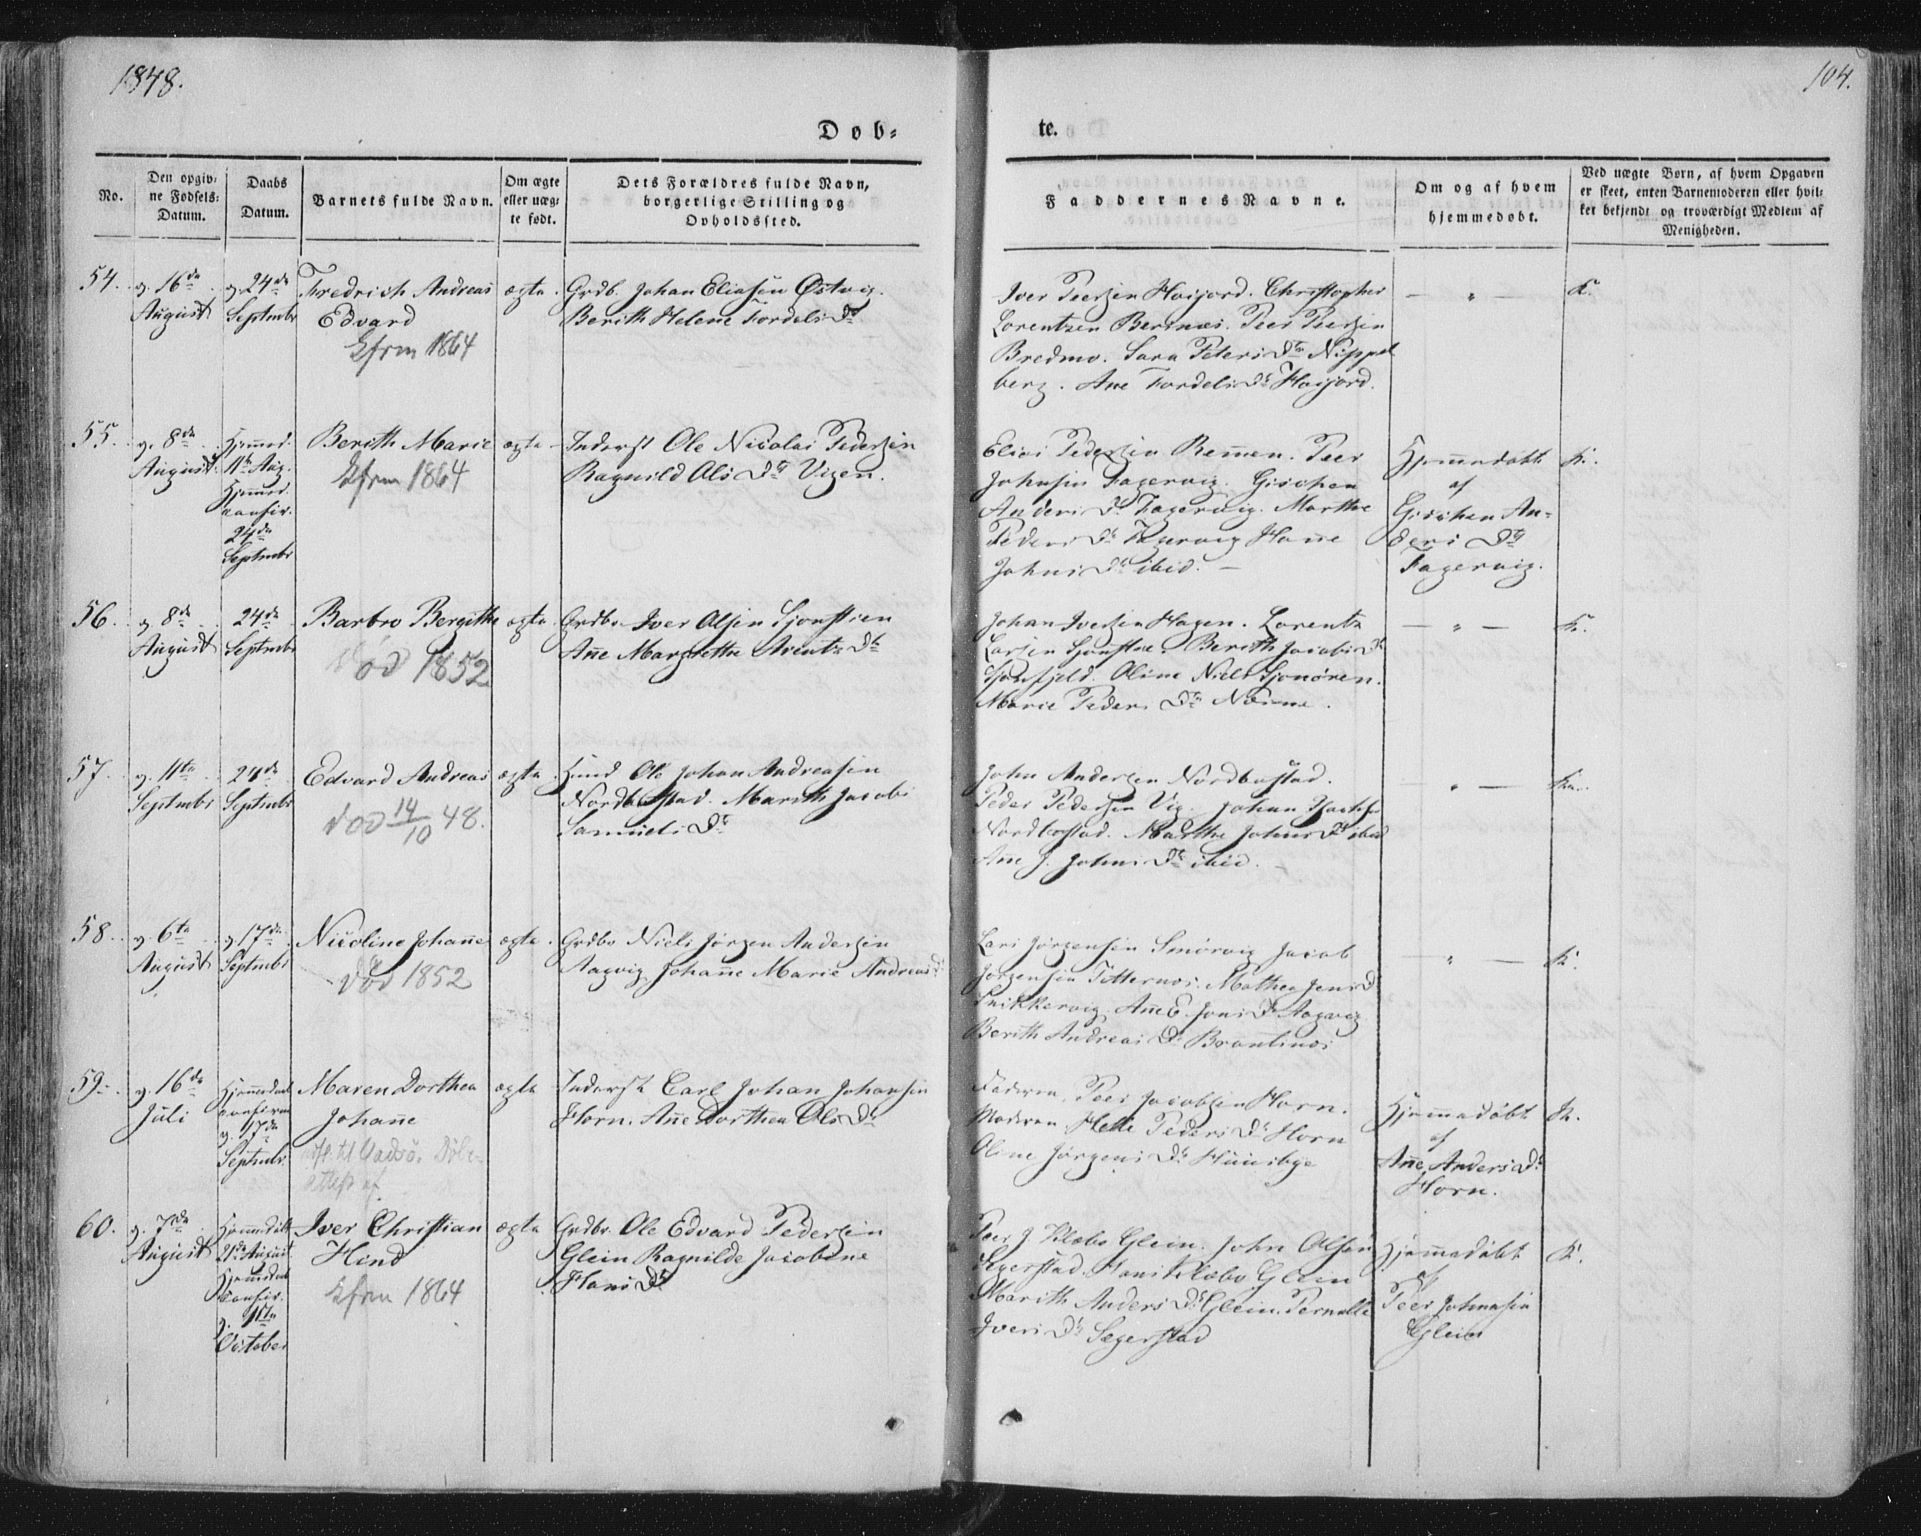 1848.
104.
Døb-
te.
No.
Den opgiv-
ne Fødsels-
Datum.
Daabs
Datum.
Barnets fulde Navn.
Om ægte
eller uæg-
te født.
Dets Forældres fulde Navn,
borgerlige Stilling og
Opholdssted.
Faddernes Navne.
Om og af hvem
hjemmedøbt.
Ved uægte Børn, af hvem Opgaven
er skeet, enten Barnemoderen eller hvil-
ket bekjendt og troværdigt Medlem af
Menigheden.
54.
d. 16de
August
d. 24de
Septmbr
Fredrich Andreas
Edvard
Kfrm 1864
ægte
Grdb. Johan Eliasen Østvig.
Berith Helene Tordeis Dr
Iver Peersen Høijord. Christopher
Lorentzen Bernæs. Peer Peersen
Bredmo. Sara Peters Dtr Nippel
berg. Ane Tordeis Dr Høijord.
— " —
K.
55.
d. 8de
August
Hjemmed.
11te Aug.
Hjemmed.
confir.
24de
Septmbr
Berith Marie
Kfrm 1864
ægte
Inderst Ole Nicolai Pedersen
Ragnild Ols Dtr Vigen.
Elias Pedersen Remen. Peer
Johnsen Fagervig. Gischen
Anders Dr Fagervig. Marthe
Peders Dr Fagervig Hanne
Johns Dr ibid. —
Hjemmedøbt
af
Gischen An-
ders Dtr
Fagervig.
K.
56.
d. 8de
August
24de
Septmbr
Barbro Bergithe
død 1852
ægte
Grdbr. Iver Olsen Sjonstren
Ane Margrethe Arentz Dtr
Johan Iversen Hagen. Lorentz
Larsen Sjonstre. Berith Jacobs Dr
Sjonfjeld. Oline Niels Sjonøren.
Marie Peders Dtr
— " —
K.
57.
d. 11te
Septmbr
24de
Septmbr
Edvard Andreas
død 14/10 48.
ægte
Huusmd Ole Johan Andreasen
Nordbostad. Marith Jacobi
Samuels Dr
John Andersen Nordbostad.
Peder Pedersen Vig. Johan
Nordbostad. Marthe Johns Dr ibid
Ane J. Johns Dr ibid. —
— " —
K.
58.
d. 6te
August
d. 17de
Septmbr
Nicoline Johanne
død 1852
ægte
Grdbr Niels Jørgen Andersen
Aagvig Johanne Marie Andreas Dr
Lars Jørgensen Smørvig Jacob
Jørgensen Titternæs. Mathea Jens Dr
Snikkervig. Ane E. Jons Dr Aagvig
Berith Andreas Dr Brantsnæs
— " —
K.
59.
d. 16de
Juli
Hjemmedøbt
confirm
d. 17de
Septmbr
Maren Dorthea
Johanne
til Vadsø. Døbe-
attest af
ægte
Inderst Carl Johan Johansen
Horn. Ane Dorthea Ols Dr
Faderen. Peer Jacobsen Horn.
Moderen. Helle Peders Dr Horn
Oline Jørgens Dr Huusbye
Hjemmedøbt
af
Ane Anders Dr
Horn.
K.
60.
d. 7de
August
Hjemmedøbt
21de August
Hjemmedøbt
confir.
d. 1ste
October
Iver Christian
Hind
Kfrm 1864
ægte
Grdbr. Ole Edvard Pedersen
Glein Ragnilde Jacobine
Hans Dr
Peer J Klæbo Glein. John Olsen
Segerstad. Hans Klæbo Glein
Marith Anders Dr Glein. Pernelle
Ivers Dr Segerstad
Hjemmedøbt
af
Peer Johnsen
Glein
K.